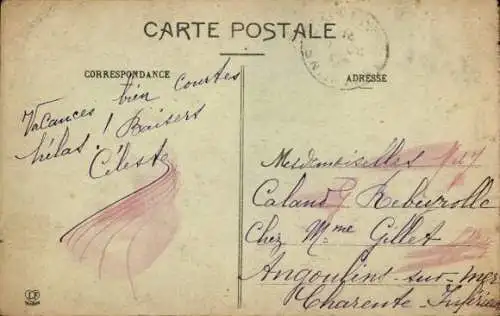 CARTE POSTALE
CORRESPONDANCE
ADRESSE
Vacances bien courtes
hélas ! Baisers
Céleste
Mesdemoiselles
Caland Rebeyrolle
Chez Mme Gillet
Angoulins-sur-Mer
Charente-Inférieure
LF